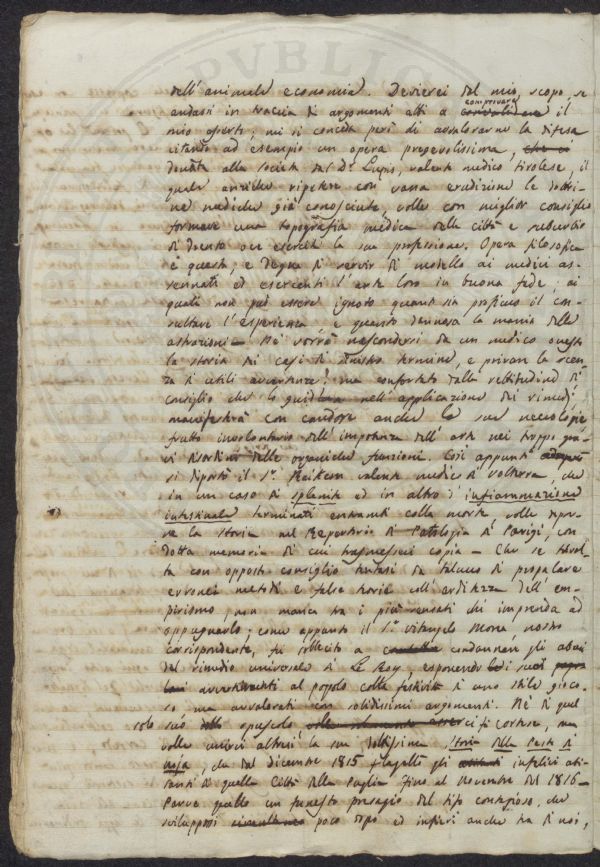 dell'animale economia. Devierei dal mio scopo, se
andassi in traccia di argomenti atti a comprovare il
mio asserto; mi si conceda però di avvalorarne la difesa
citando ad esempio un opera pregevolissima,
donata alla società dal Dr Lupis, valente medico tirolese, il
quale anziche ripetere con vana erudizione le dottri-
ne mediche già conosciute, volle con miglior consiglio
formare una topografia medica della città e suburbio
di ove esercita la sua professione. Opera filosofica
è questa, e degna di servir di modello ai medici as-
sennati ed esercenti l'arte loro in buona fede; ai
quali non può essere ignoto quanto sia proficuo il con-
sultare l'esperienza e quanto dannosa la mania delle
astrazioni. Nè vorrà nascondersi da un medico onesto
la storia dei casi di sinistro termine, e privare la scien-
za di utili avvertenze; ma confortato dalla rettitudine di
consiglio che lo guidò nell'applicazione dei rimedj
manifesterà con candore anche le sue necrologie
frutto involontario dell'impotenza dell'arte nei troppo gra-
vi disordini delle organiche funzioni. Così appunto
si diportò il Sr. Raikem valente medico di Volterra, che
in un caso di splenite ed in altro d'infiammazione
intestinale terminati entrambi colla morte volle ripor-
ne la storia nel Repertorio di Patologia di Parigi, con
dotta memoria di cui trasmessici copia — Che se talvol-
ta con opposto consiglio tentasi da taluno di propalare
erronei metodi e false teorie coll'arditezza dell'em-
pirismo, non manca tra i più sensati chi imprenda ad
oppugnarlo; come appunto il Sr. Vitangelo Morea, nostro
corrispondente, fu sollecito a condannare gli abusi
del rimedio universale di Le Roy, esponendo i suoi
avvertimenti al popolo colla festività di uno stile gioco-
so ma avvalorati con solidissimi argomenti. Nè di quel
solo suo opuscolo ci fu cortese, ma
volle unirci altresì la sua dottissima storia della Peste di
Noja, che dal dicembre 1815 flagellò gli infelici abi-
tanti di quella Città della Puglia fino al Novembre del 1816 —
Parve quello un funesto presagio del tifo contagioso, che
sviluppossi poco dopo ed infierì anche tra di noi,